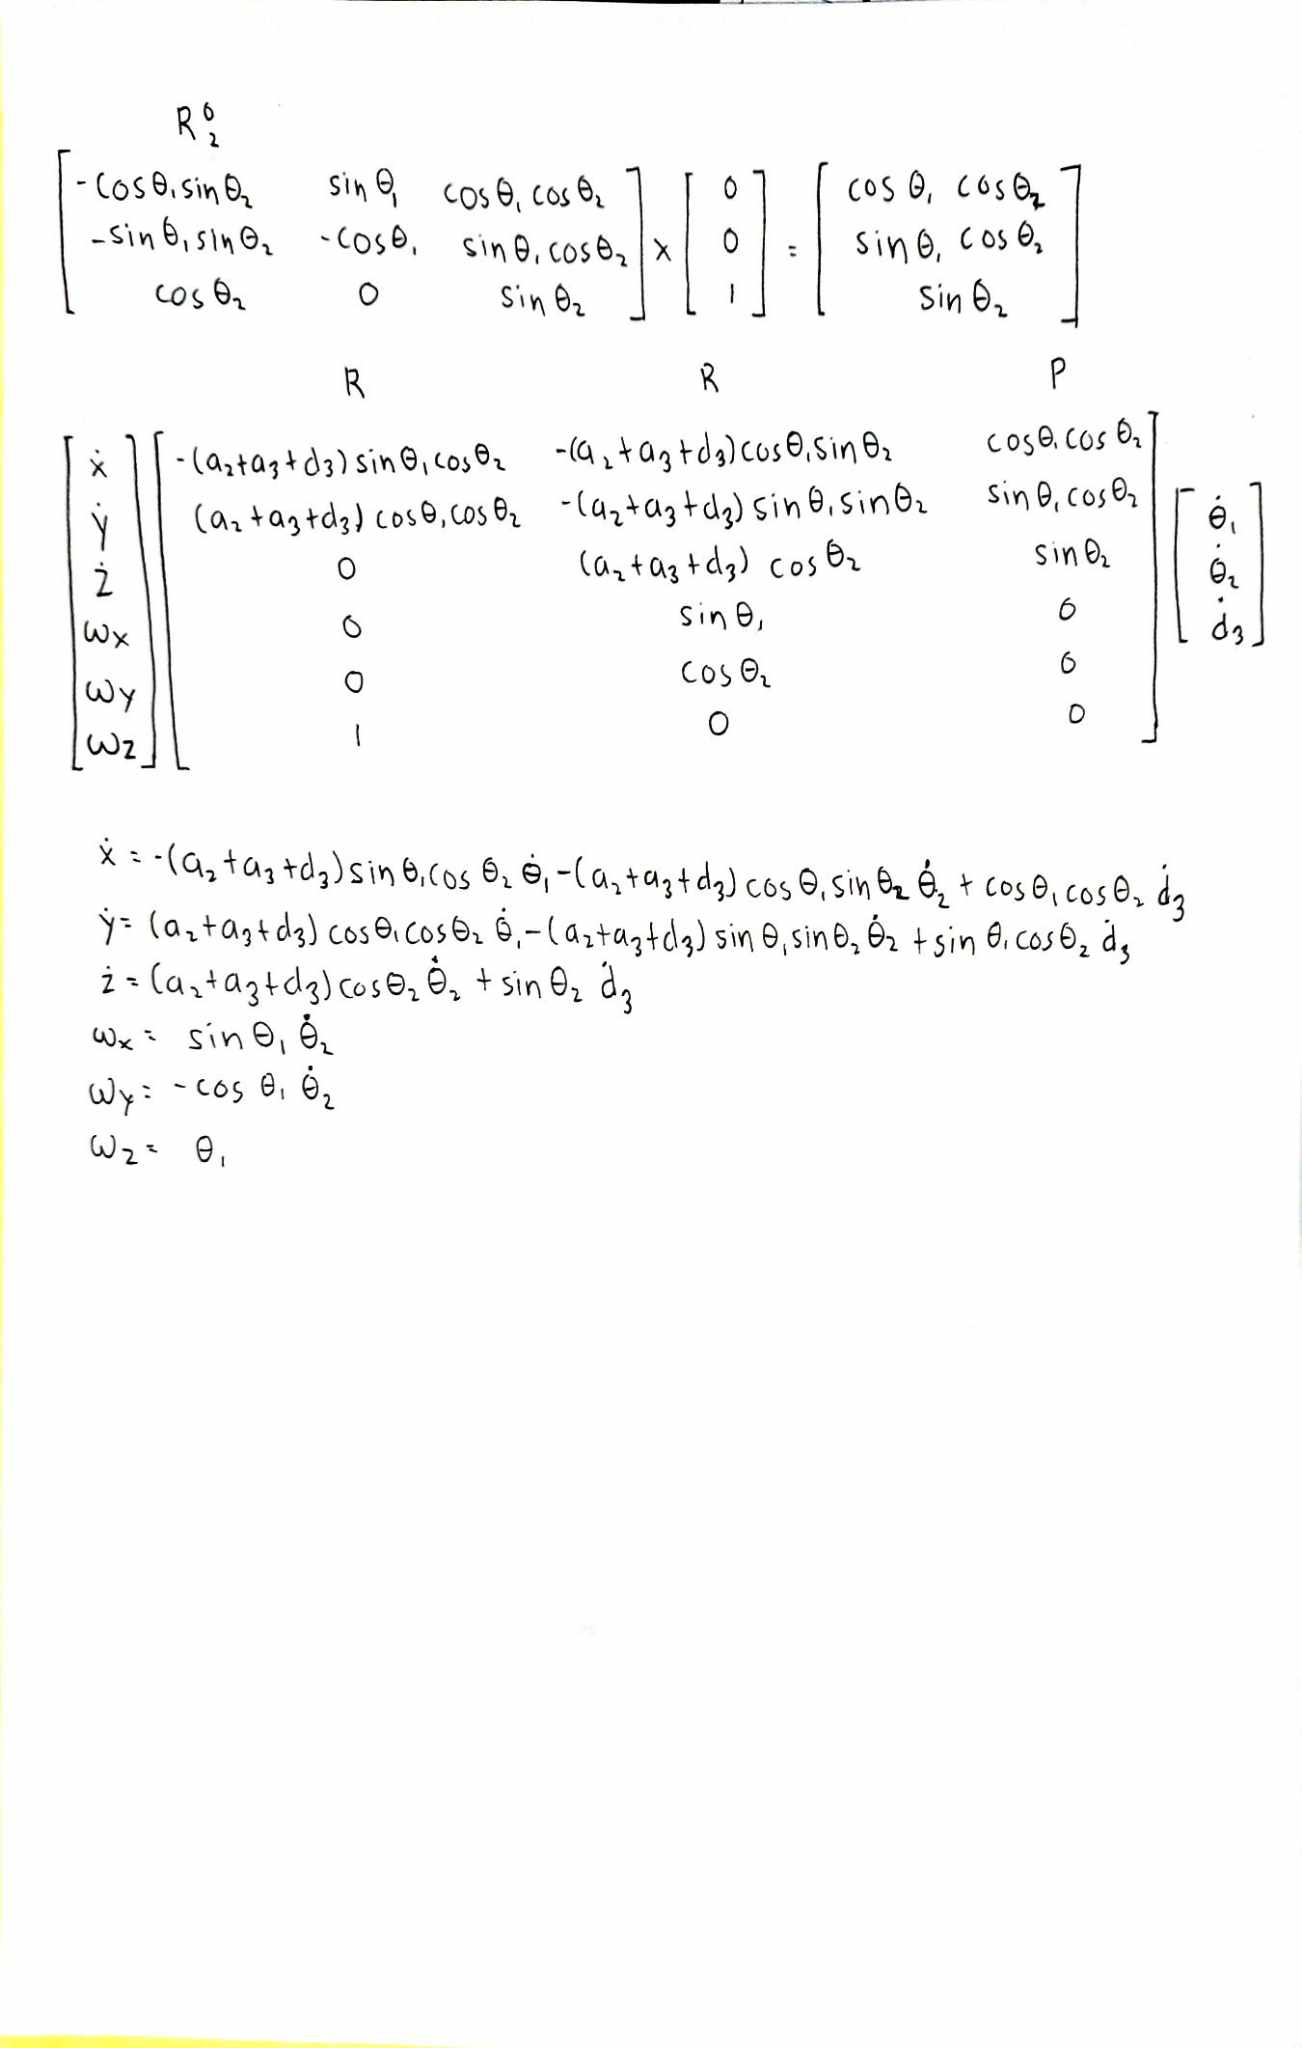 R⁰₂
[ -cosθ₁sinθ₂ sinθ₁ cosθ₁cosθ₂ ] [ 0 ] [ cosθ₁ cosθ₂ ]
[ -sinθ₁sinθ₂ -cosθ₁ sinθ₁cosθ₂ ] x [ 0 ] = [ sinθ₁ cosθ₂ ]
[ cosθ₂ 0 sinθ₂ ] [ 1 ] [ sinθ₂ ]
R R P
[ ẋ ] [ -(a₂+a₃+d₃)sinθ₁cosθ₂ -(a₂+a₃+d₃)cosθ₁sinθ₂ cosθ₁cosθ₂ ]
[ ẏ ] [ (a₂+a₃+d₃)cosθ₁cosθ₂ -(a₂+a₃+d₃)sinθ₁sinθ₂ sinθ₁cosθ₂ ] [ θ̇₁ ]
[ ż ] [ 0 (a₂+a₃+d₃)cosθ₂ sinθ₂ ] [ θ̇₂ ]
[ ωx ] [ 0 sinθ₁ 0 ] [ ḋ₃ ]
[ ωy ] [ 0 cosθ₂ 0 ]
[ ωz ] [ 1 0 0 ]
ẋ = -(a₂+a₃+d₃)sinθ₁cosθ₂ θ̇₁ -(a₂+a₃+d₃)cosθ₁sinθ₂ θ̇₂ + cosθ₁cosθ₂ ḋ₃
ẏ = (a₂+a₃+d₃)cosθ₁cosθ₂ θ̇₁ -(a₂+a₃+d₃)sinθ₁sinθ₂ θ̇₂ + sinθ₁cosθ₂ ḋ₃
ż = (a₂+a₃+d₃)cosθ₂ θ̇₂ + sinθ₂ ḋ₃
ωx = sinθ₁ θ̇₂
ωy = -cosθ₁ θ̇₂
ωz = θ₁